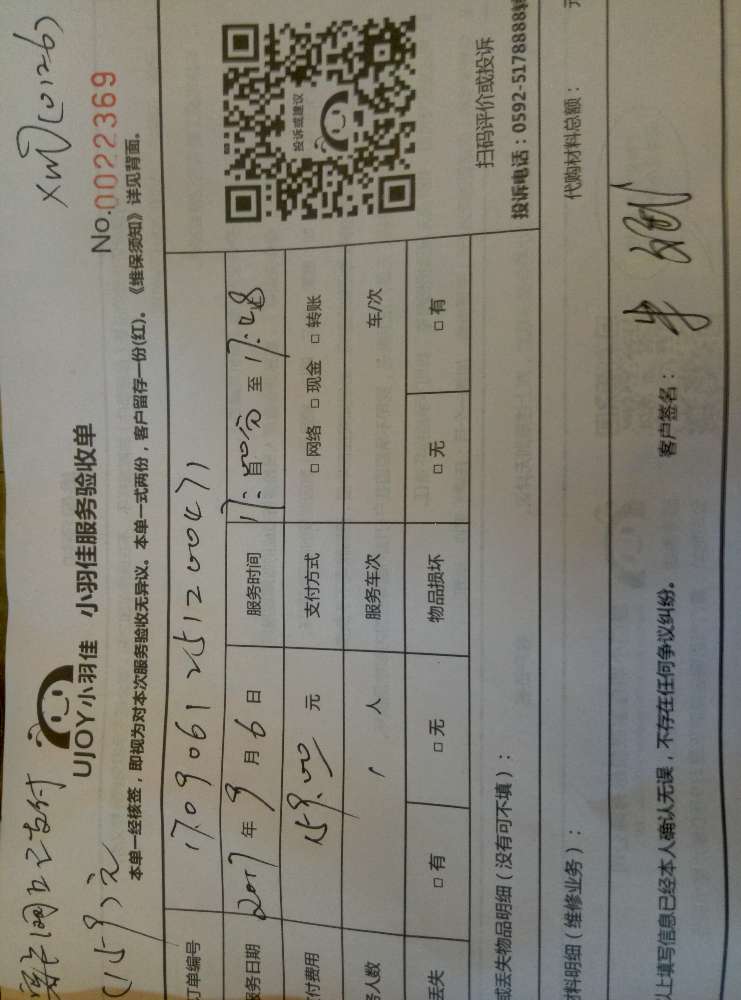 网上已支付
(159)元
XM(0126)
UJOY小羽佳 小羽佳服务验收单
No.0022369
本单一经核签，即视为对本次服务验收无异议。本单一式两份，客户留存一份(红)。《维保须知》详见背面。
订单编号 170906125120047
服务日期 2017年9月6日 服务时间 17: 分 至 17:48
付费用 159.00 元 支付方式 □ 网络 □ 现金 □ 转账
务人数 1 人 服务车次 车/次
丢失 □ 有 □ 无 物品损坏 □ 无 □ 有
投诉或建议
扫码评价或投诉
投诉电话：0592-5178888转
或丢失物品明细（没有可不填）：
材料明细（维修业务）： 代购材料总额： 元
以上填写信息已经本人确认无误，不存在任何争议纠纷。 客户签名：